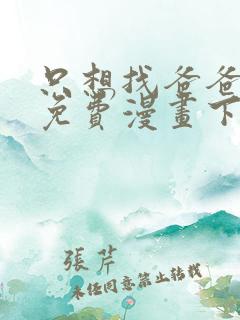 只想找爸爸
免费漫畫下
張芹
未经同意禁止转载